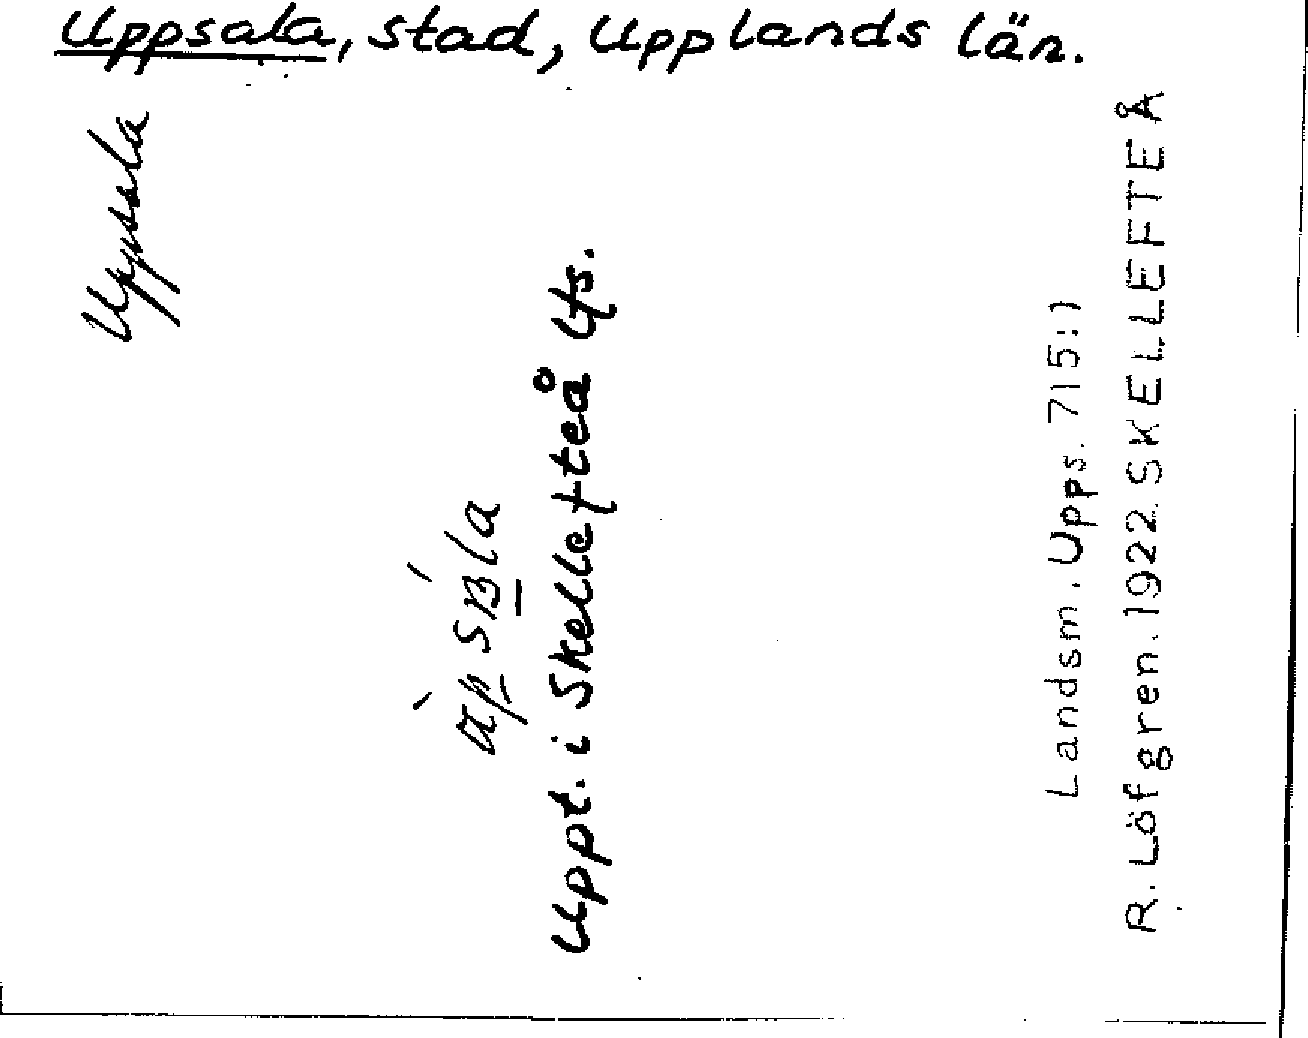 Uppsala, stad, Upplands län.
Uppsala
Uppt. i Skellefteå lfs.
Landsm. Upps. 715:1
R. Löfgren. 1922. SKELLEFTEÅ